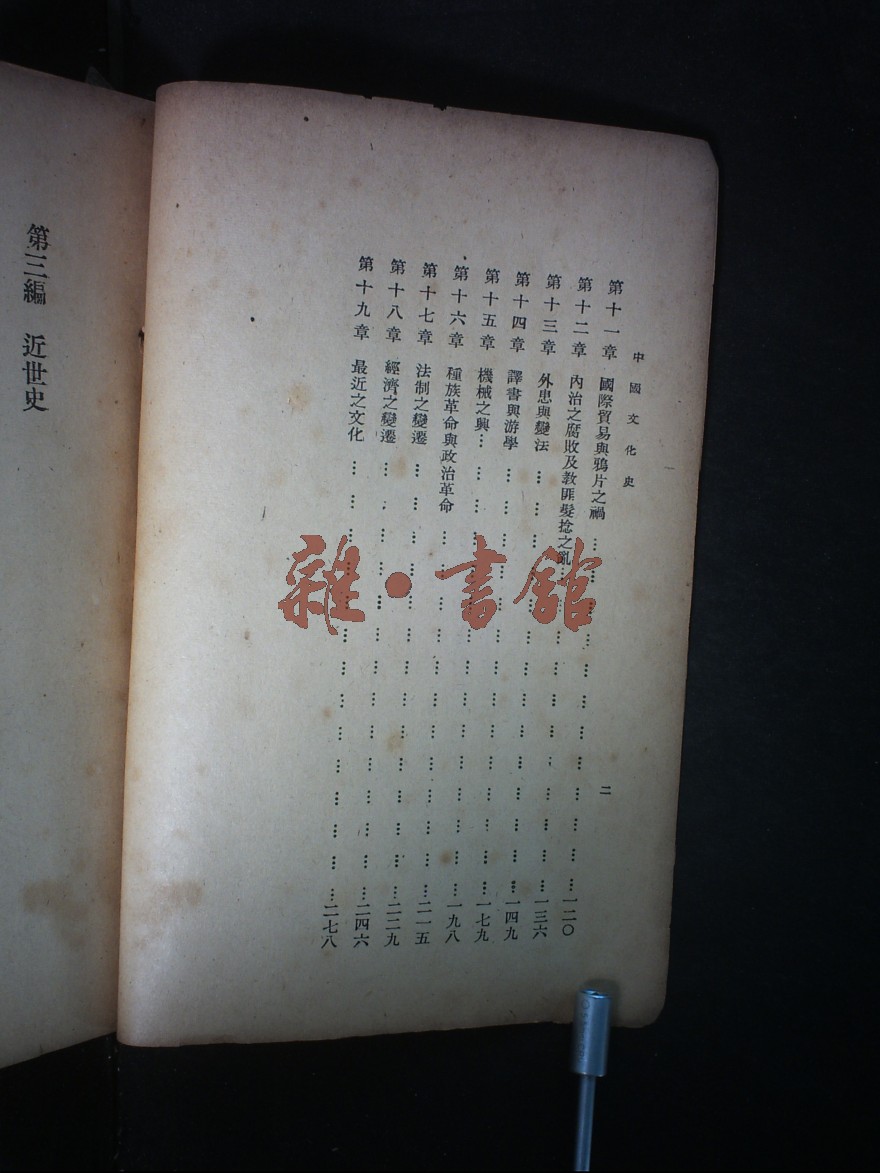 中國文化史 二
第十一章 國際貿易與鴉片之禍……一二〇
第十二章 內治之腐敗及教匪髮捻之亂……一三六
第十三章 外患與變法……一四九
第十四章 譯書與游學……一七九
第十五章 機械之興……一九八
第十六章 種族革命與政治革命……二一五
第十七章 法制之變遷……二二九
第十八章 經濟之變遷……二四六
第十九章 最近之文化……二七八
第三編 近世史
雜·書館